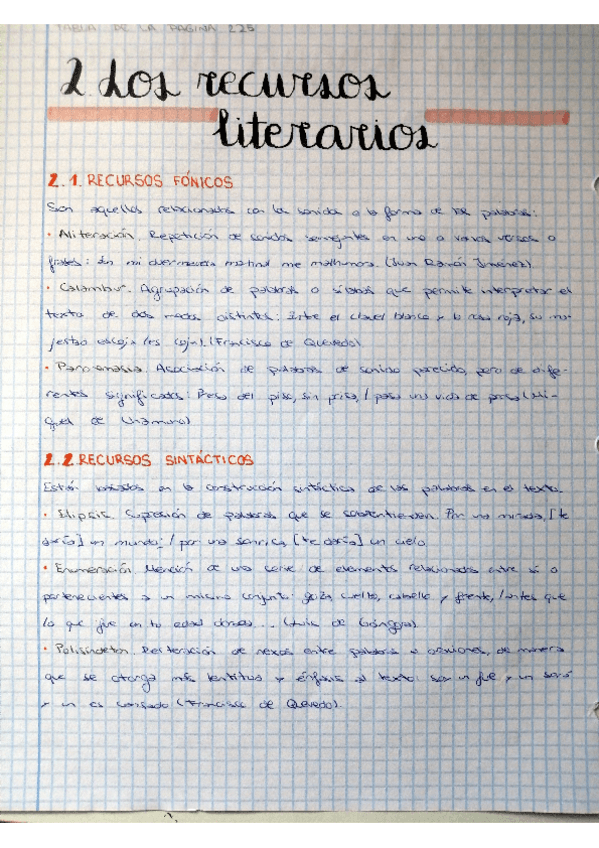 TABLA DE LA PÁGINA 225
2. Los recursos
literarios
2.1. RECURSOS FÓNICOS
Son aquellos relacionados con la sonido o la forma de las palabras:
· Aliteración. Repetición de sonidos semejantes en uno o varios versos o
frases: En mi duermevela matinal me malhumora. (Juan Ramón Jiménez).
· Calambur. Agrupación de palabras o sílabas que permite interpretar el
texto de dos modos distintos: Entre el clavel blanco y la rosa roja, su ma-
jestad escoja (es coja). (Francisco de Quevedo)
· Paronomasia. Asociación de palabras de sonido parecido, pero de dife-
rentes significados: Preso del piso, sin prisa, / paso una vida de prosa (Mi-
guel de Unamuno)
2.2 RECURSOS SINTÁCTICOS
Están basados en la construcción sintáctica de las palabras en el texto.
· Elipsis. Supresión de palabras que se sobrentienden. Por una mirada, [te
daría] un mundo; / por una sonrisa, [te daría] un cielo.
· Enumeración. Mención de una serie de elementos relacionados entre sí o
pertenecientes a un mismo conjunto: goza cuello, cabello y frente, / antes que
lo que fue en tu edad dorada... (Luis de Góngora)
· Polisíndeton. Reiteración de nexos entre palabras u oraciones, de manera
que se otorga más lentitud y énfasis al texto: soy un fue, y un será
y un es cansado (Francisco de Quevedo).